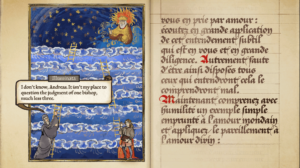 Illuminata
I don't know, Andreas. It isn't my place to
question the judgment of our bishop,
much less there.
vous en prie par amour :
écoutez en grande application
de cet entendement subtil
qui est en vous et en grande
diligence. Autrement faute
d'être ainsi disposés tous
ceux qui entendront cela le
comprendront mal.
Maintenant comprenez avec
humilité un exemple simple
emprunté à l'amour mondain
et appliquez-le pareillement à
l'amour divin :